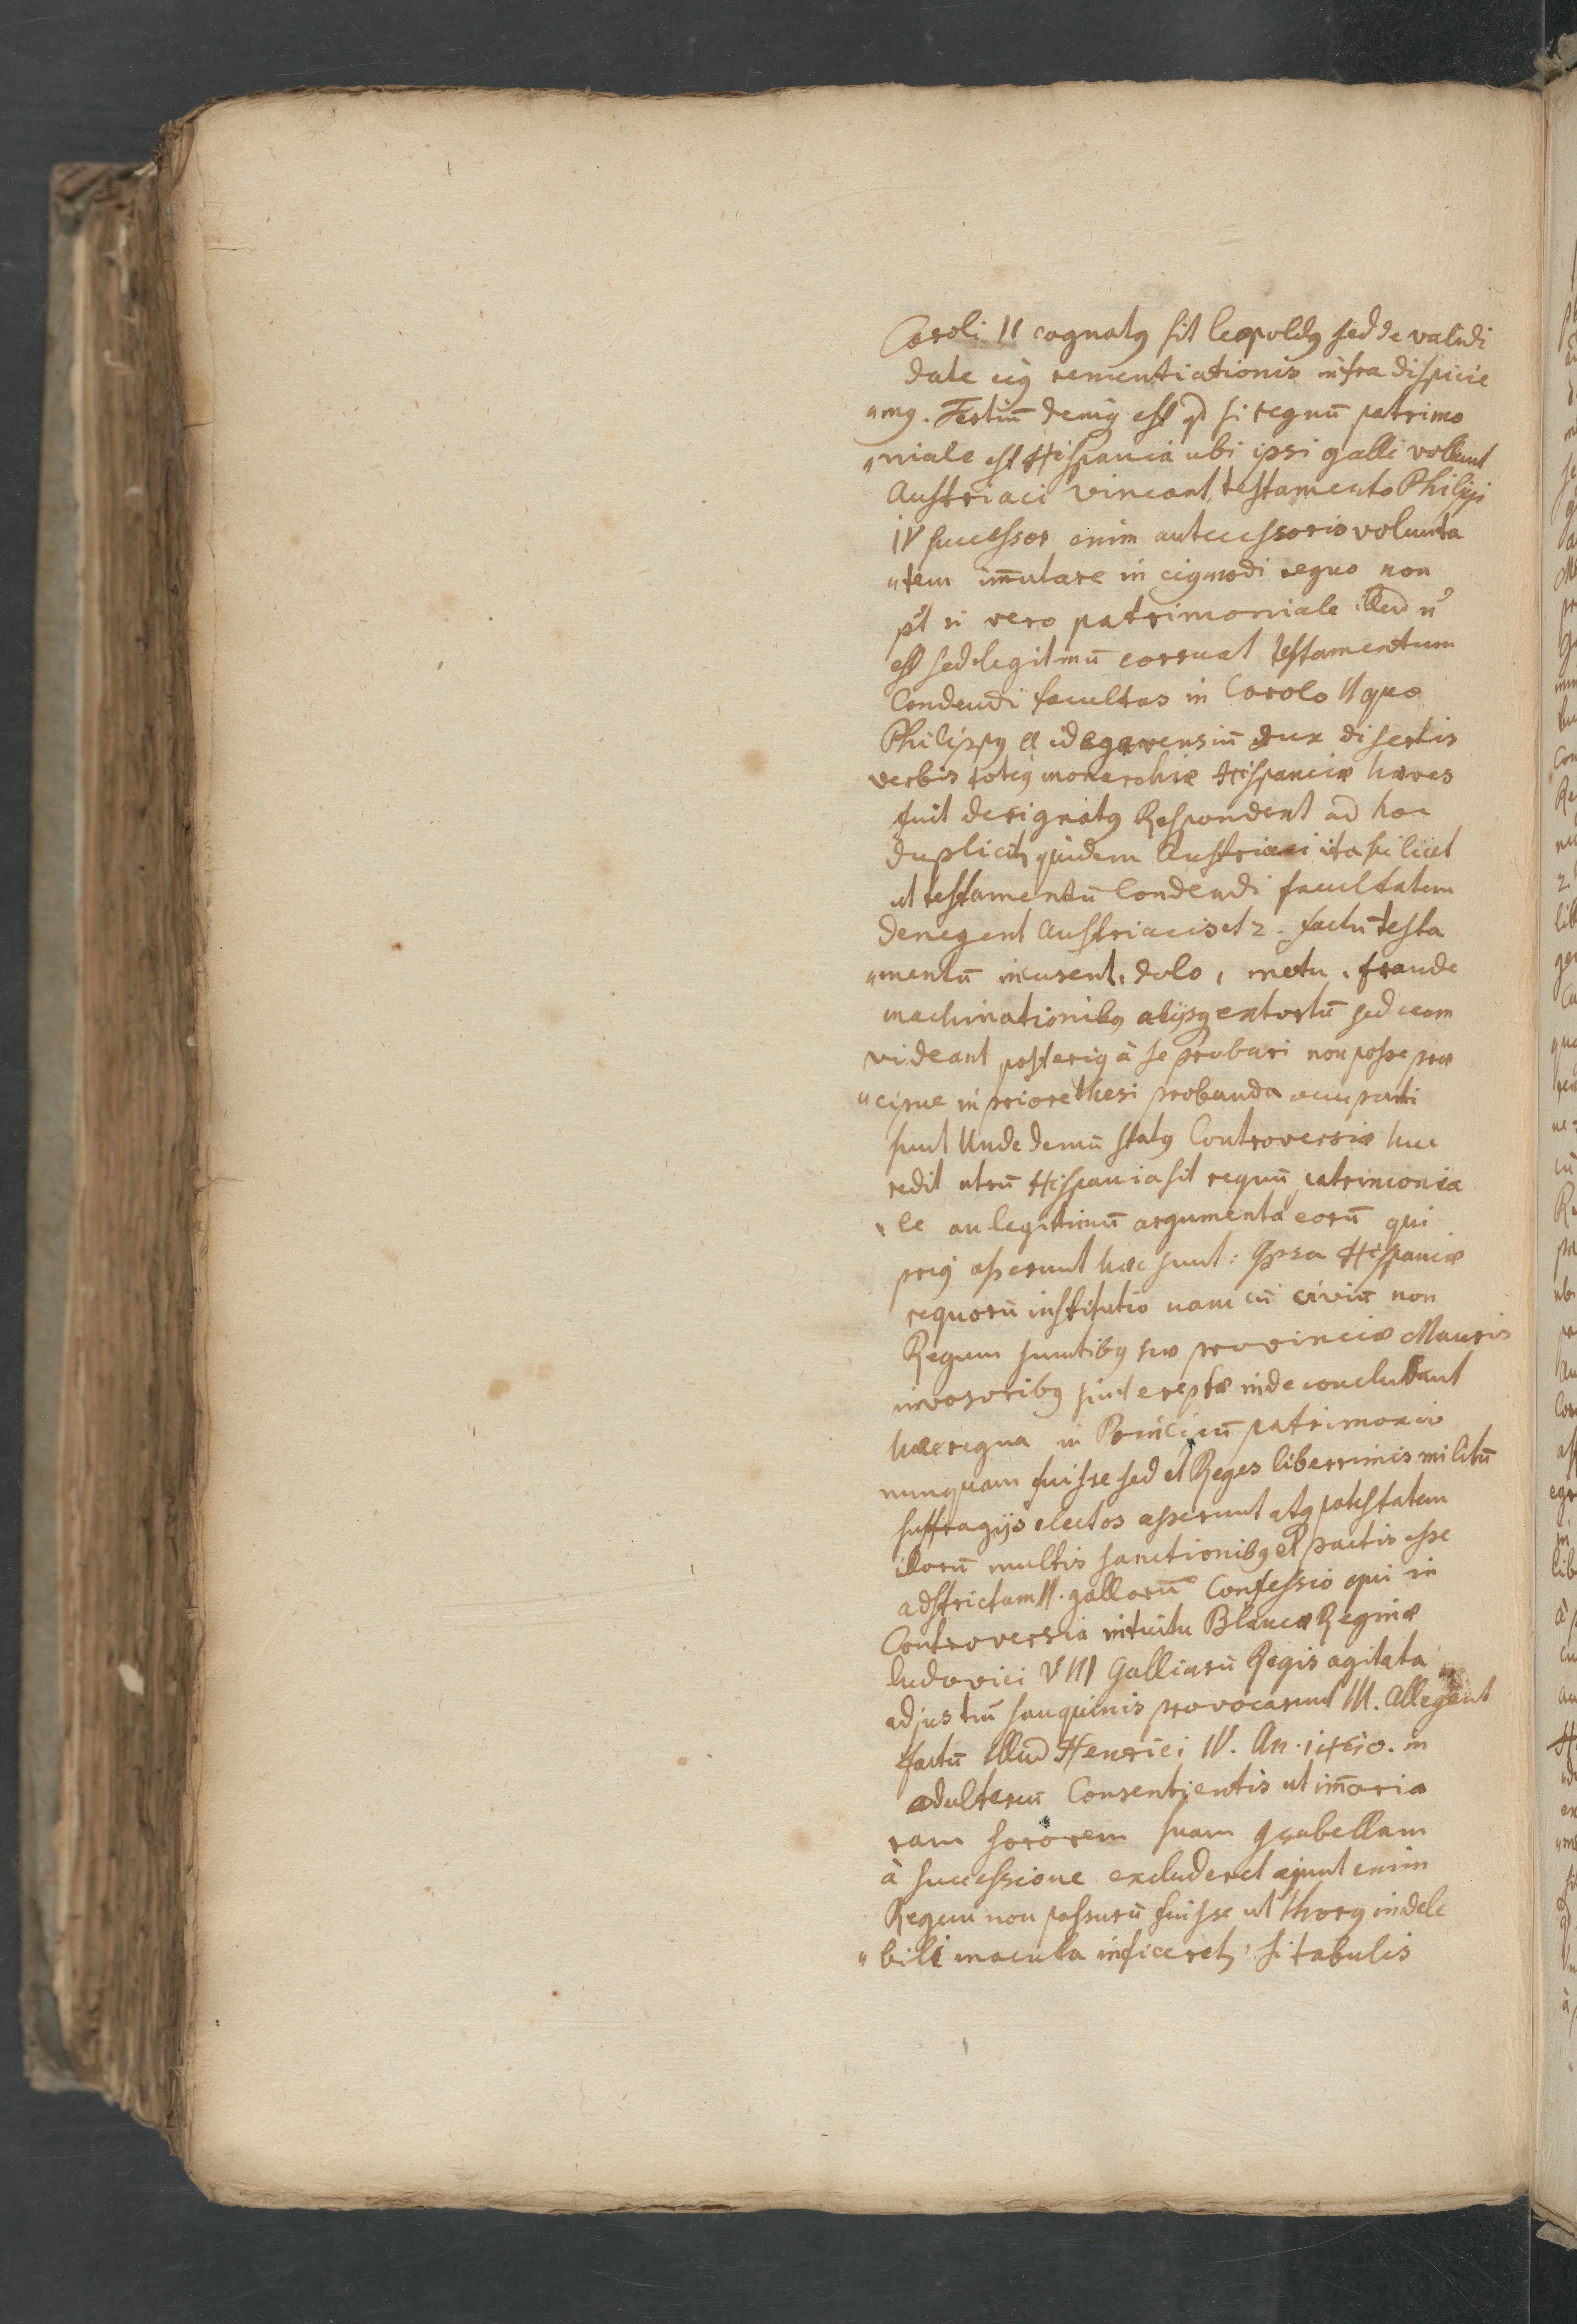 Caroli II cognatꝰ sit leopoldꝰ sed de validi
date eiꝰ renuntiationis infra dispicie
„mꝰ. Tertiū deniqꝫ est qd si regnū patrimo
„niale est Hispania ubi ipsi galli vollunt
Austriaci vincant, testamento Philippi
IV successor enim antecessoris volunta
„tem im̄utare in eiꝰmodi regno non
pt si vero patrimoniale illud n̄
est sed legitimū corruat testamentum
Condendi facultas in Carolo II quo
Philippꝰ Andegavensiū dux disertis
verbis totiꝰ monarchiæ Hispanicæ hæres
fuit designatꝰ Respondent ad hoc
dupliciter quidem Austriaci ita scilicet
ut testamentū Condendi facultatem
denegent Austriacis et 2. factū testa
„mentū incusent, dolo, metu, fraude
machinationibꝰ alijsqꝫ extortū sed cum
videant posteriꝰ à se probari non posse præ
„cipue in priore thesi probanda occupati
sunt Unde demū statꝰ Controversiæ huc
redit utrū Hispania sit regnū patrimonia
„le an legitimū argumenta eorū qui
priꝰ asserunt hæc sunt: Ipsa Hispaniæ
regnorū institutio nam cū civiū non
Regum sumtibꝰ hæ provinciæ Mauris
invasoribꝰ sint ereptæ inde concludunt
hæc regna in Principū patrimonio
nunquam fuisse sed et Reges liberrimis militū
suffragijs electos asserunt atqꝫ potestatem
illorū multis sanctionibꝰ et pactis esse
adstrictam II. gallorū Confessio qui in
Controversia intuitu Blancæ Reginæ
ludovici VIII Galliarū Regis agitata
ad jus trū sanguinis provocarunt III. Allegant
factū illud Henrici IV. An. 1460. in
adulteriū Consentientis ut im̄oria
ram sororem suam Isabellam
à successione excluderet ajunt enim
Regem non passurū fuisse ut thorꝰ indele
„bili macula inficeretur, si tabulis